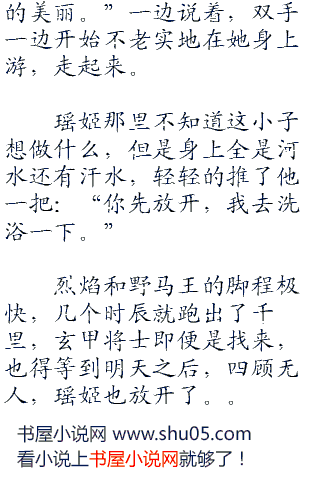 的美丽。”一边说着，双手
一边开始不老实地在她身上
游，走起来。
瑶姬那里不知道这小子
想做什么，但是身上全是河
水还有汗水，轻轻的推了他
一把：“你先放开，我去洗
浴一下。”
烈焰和野马王的脚程极
快，几个时辰就跑出了千
里，玄甲将士即便是找来，
也得等到明天之后，四顾无
人，瑶姬也放开了。。
书屋小说网 www.shu05.com
看小说上书屋小说网就够了！